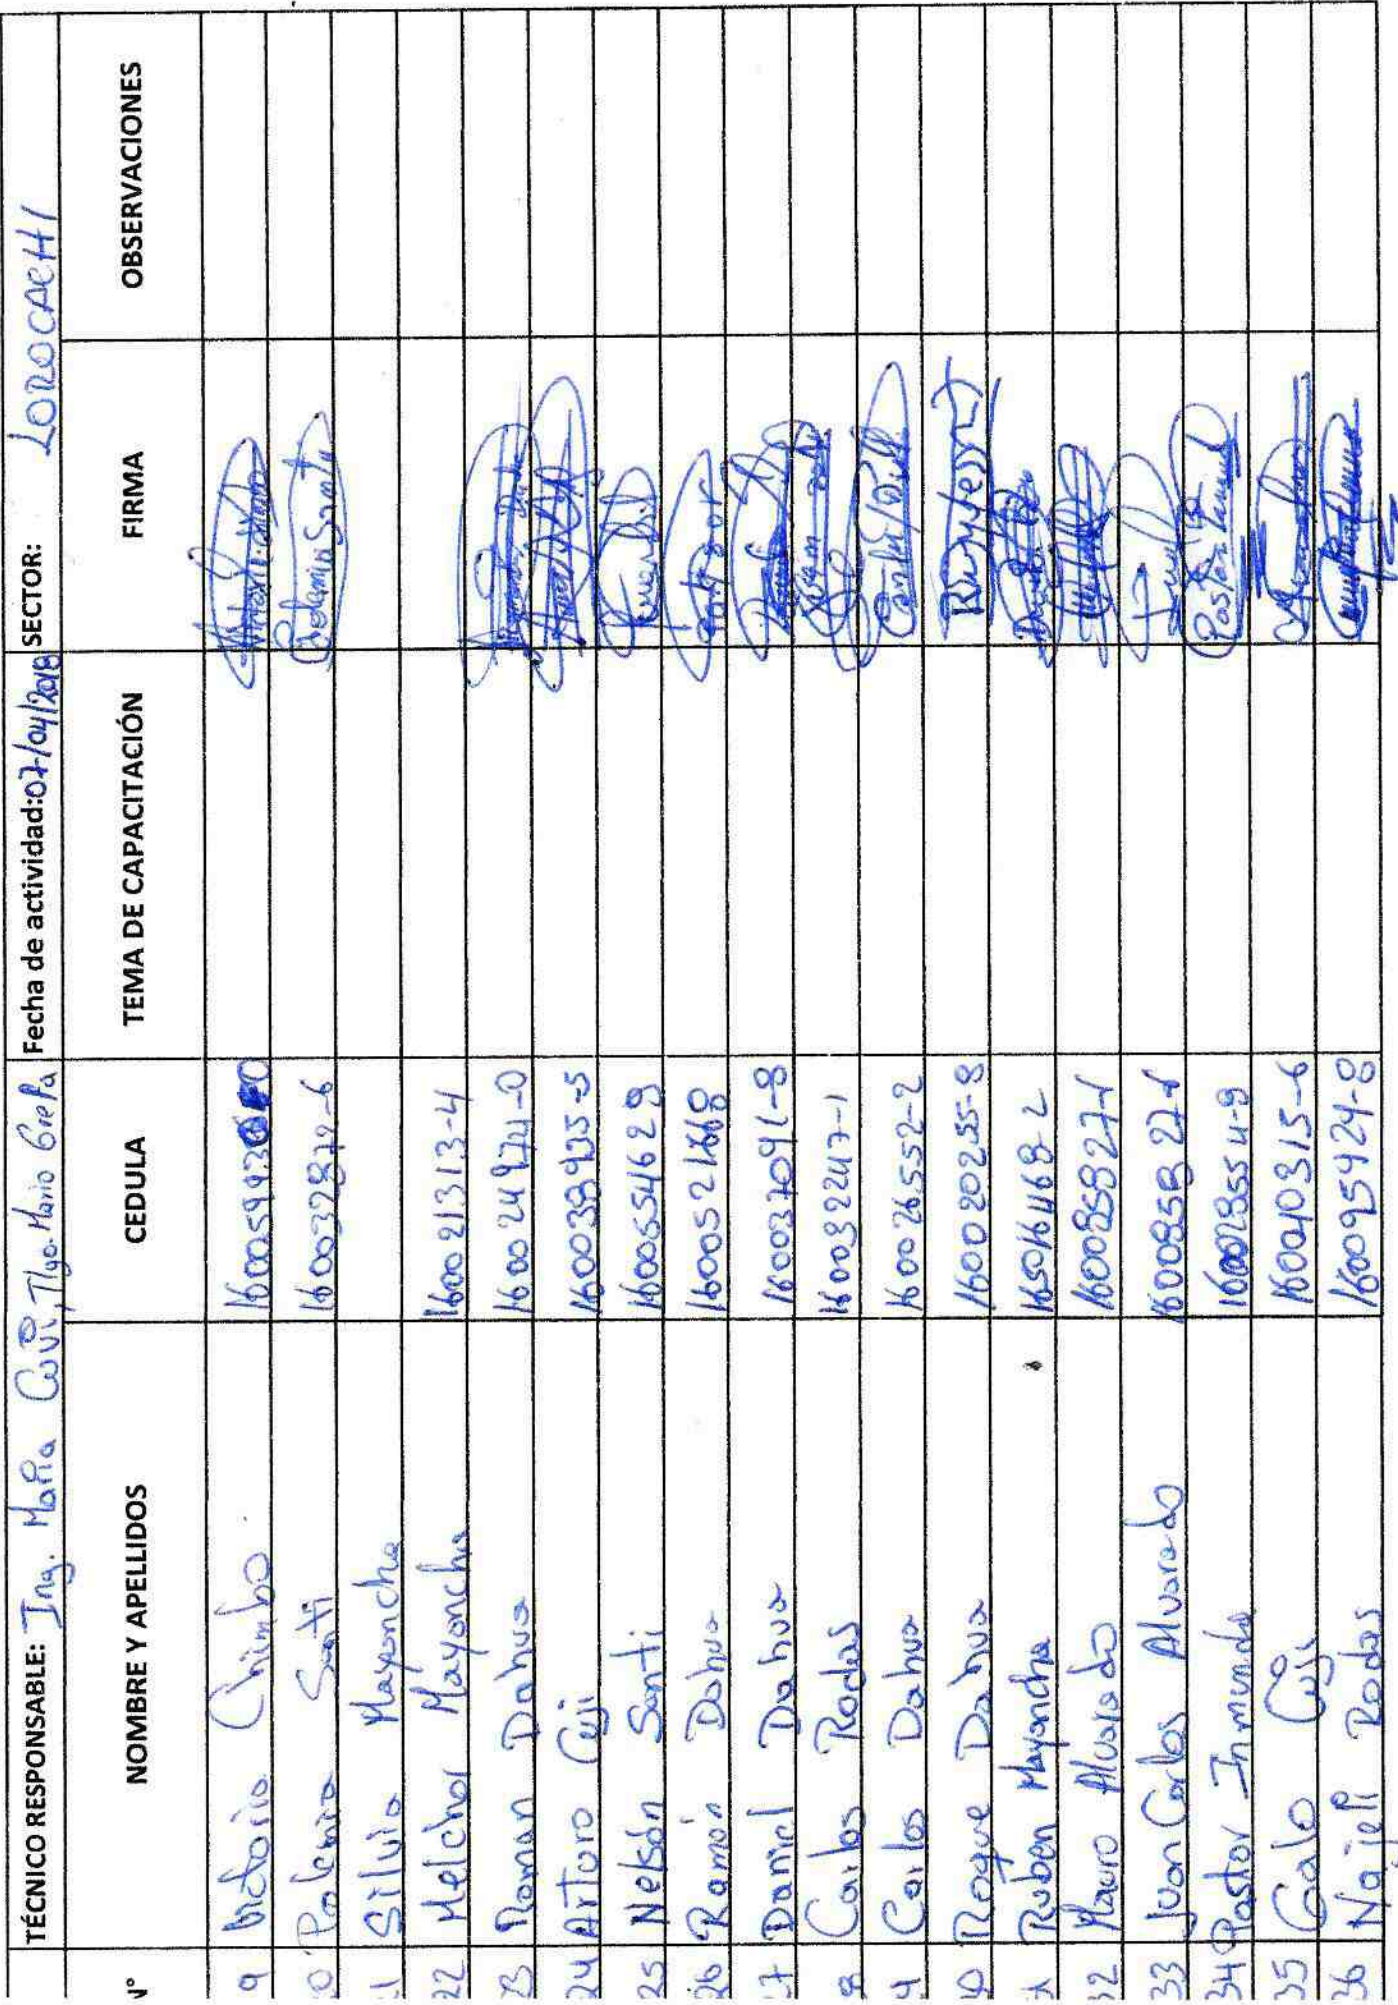 TÉCNICO RESPONSABLE: Ing. María Cuji, Tlgo. Mario Grefa Fecha de actividad: 07/04/2018 SECTOR: LOROCACHI
N° NOMBRE Y APELLIDOS CEDULA TEMA DE CAPACITACIÓN FIRMA OBSERVACIONES
9 Victoria Chimbo
0 Polemia Santi 160032872-6
1 Silvia Mayancha
22 Melchor Mayancha 160021313-4
23 Roman Dahua 160024974-0
24 Arturo Cuji 160038935-5
25 Nelson Santi 1600554629
26 Ramón Dahua
7 Daniel Dahua 160037091-8
8 Carlos Rodas 160032247-1
9 Carlos Dahua 160026552-2
0 Roque Dahua 160020255-8
1 Ruben Mayancha 165016468-2
32 Mauro Alvarado 160085827-1
33 Juan Carlos Alvarado 160085827-1
34 Pastor Inmunda 160028554-9
35 Galo Cuji 160040315-6
36 Najeli Rodas 160095424-8